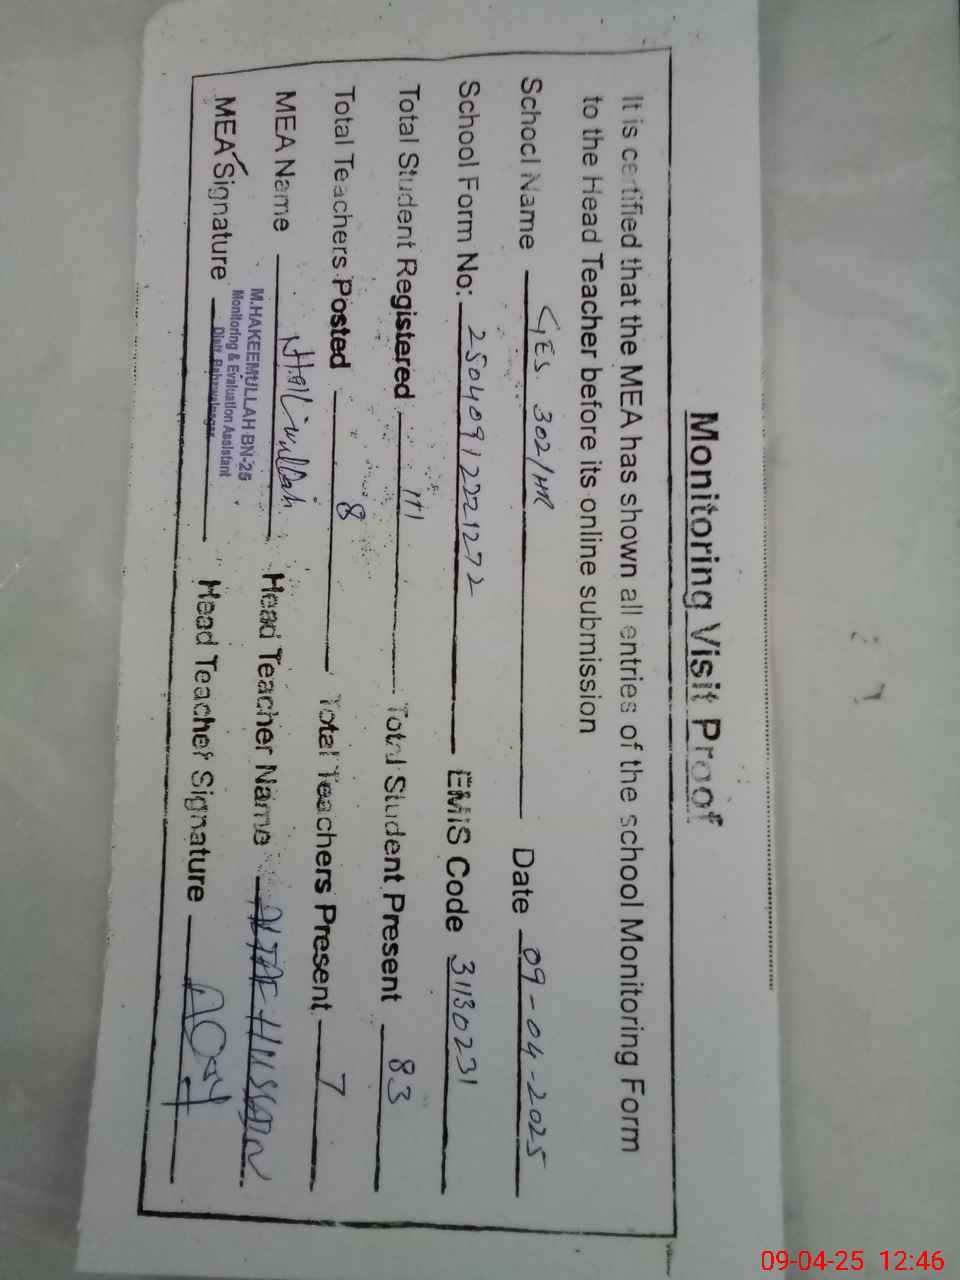 Monitoring Visit Proof
It is certified that the MEA has shown all entries of the school Monitoring Form
to the Head Teacher before its online submission
School Name GES 302/HR Date 09-04-2025
School Form No: 25040912221272 EMIS Code 31130231
Total Student Registered 111 Total Student Present 83
Total Teachers Posted 8 Total Teachers Present 7
MEA Name Head Teacher Name ALTAF HUSSAIN
M.HAKEEMULLAH BN-25
Monitoring & Evaluation Assistant
Distt. Bahawalnagar
MEA Signature Head Teacher Signature
09-04-25 12:46